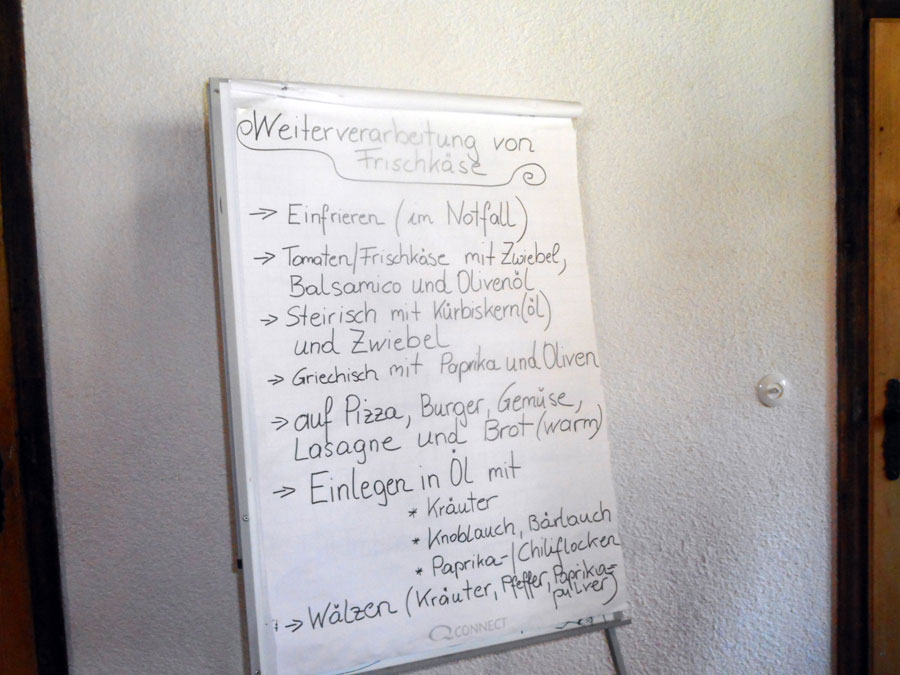 Weiterverarbeitung von
Frischkäse
→ Einfrieren (im Notfall)
→ Tomaten/Frischkäse mit Zwiebel,
Balsamico und Olivenöl
→ Steirisch mit Kürbiskern(öl)
und Zwiebel
→ Griechisch mit Paprika und Oliven
→ auf Pizza, Burger, Gemüse,
Lasagne und Brot (warm)
→ Einlegen in Öl mit
* Kräuter
* Knoblauch, Bärlauch
* Paprika-/Chiliflocken
→ Wälzen (Kräuter, Pfeffer, Paprika=
pulver)
Q CONNECT